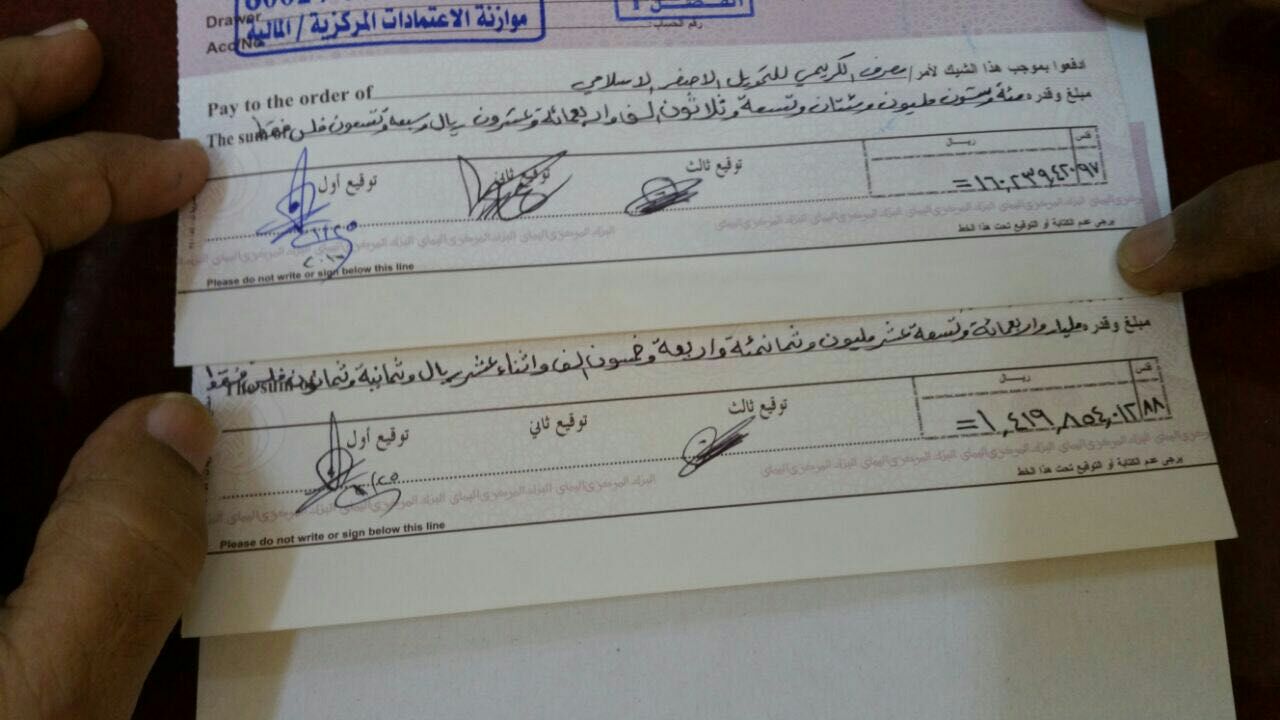 Drawer
Acc No
موازنة الاعتمادات المركزية / المالية
رقم الحساب
ادفعوا بموجب هذا الشيك لأمر/ مصرف الكريمي للتمويل الاصغر الاسلامي
Pay to the order of
مبلغ وقدره مئة وستون مليون ومئتان وتسعة وثلاثون الف واربعمائة وعشرون ريال وسبعه وتسعون فلس فقط
The sum of
توقيع أول توقيع ثاني توقيع ثالث ريـال فلس
=١٦٠,٢٣٩,٤٢٠ ٩٧
البنك المركزي اليمني البنك المركزي اليمني
Please do not write or sign below this line
يرجى عدم الكتابة أو التوقيع تحت هذا الخط
مبلغ وقدره مليار واربعمائة وتسعة عشر مليون وثمانمئة واربعة وخمسون الف واثناء عشر ريال وثمانية وثمانون فلس فقط
The sum of
توقيع أول توقيع ثاني توقيع ثالث ريـال فلس
=١,٤١٩,٨٥٤,٠١٢ ٨٨
البنك المركزي اليمني البنك المركزي اليمني
Please do not write or sign below this line
يرجى عدم الكتابة أو التوقيع تحت هذا الخط